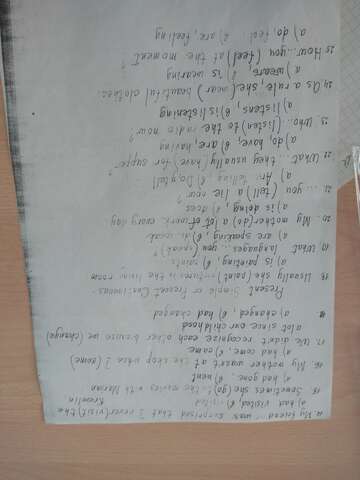 14. My friend was surprised that I never (visit) the Kremlin
a) had visited, b) visited
15. Sometimes she (go) to the movies with Marian
a) had gone, b) went
16. My mother wasn't at the shop when I (come)
a) had come, b) came
17. We didn't recognize each other because we (change) a lot since our childhood
a) changed b) had changed
Present Simple or Present Continuous
18. Usually she (paint) pictures in the living room
a) is painting, b) paints
19. What languages ... you (speak)?
a) are speaking b) do speak
20. My mother (do) a lot of work every day
a) is doing, b) does
21. ... you (tell) a lie now?
a) Are telling b) Do tell
22. What ... they usually (have) for supper?
a) do, have, b) are, having
23. Who ... (listen) to the radio now?
a) listens, b) is listening
24. As a rule she (wear) beautiful clothes:
a) wears b) is wearing
25 How ... you (feel) at the moment?
a) do feel b) are, feeling